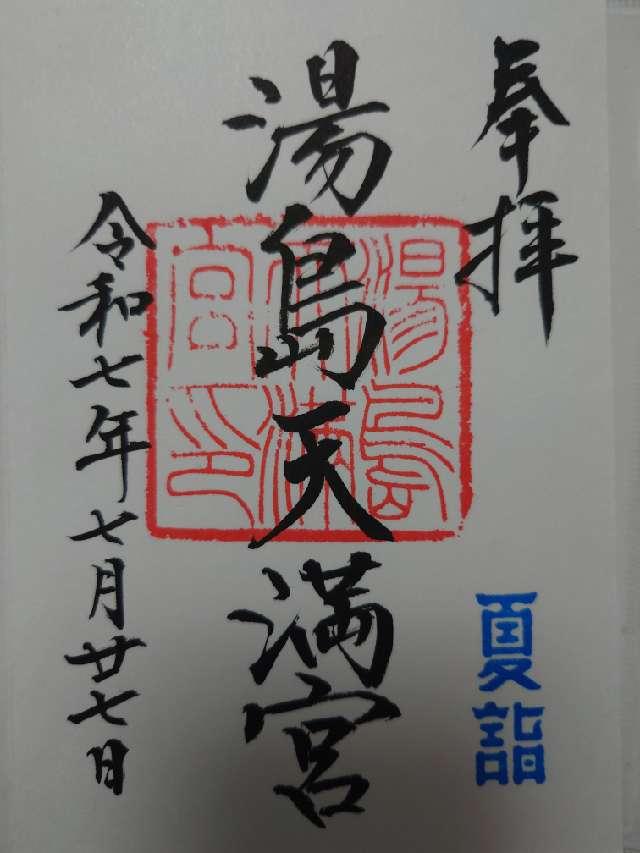 奉拝
夏詣
湯島天満宮
湯島天満宮印
令和七年七月廿七日